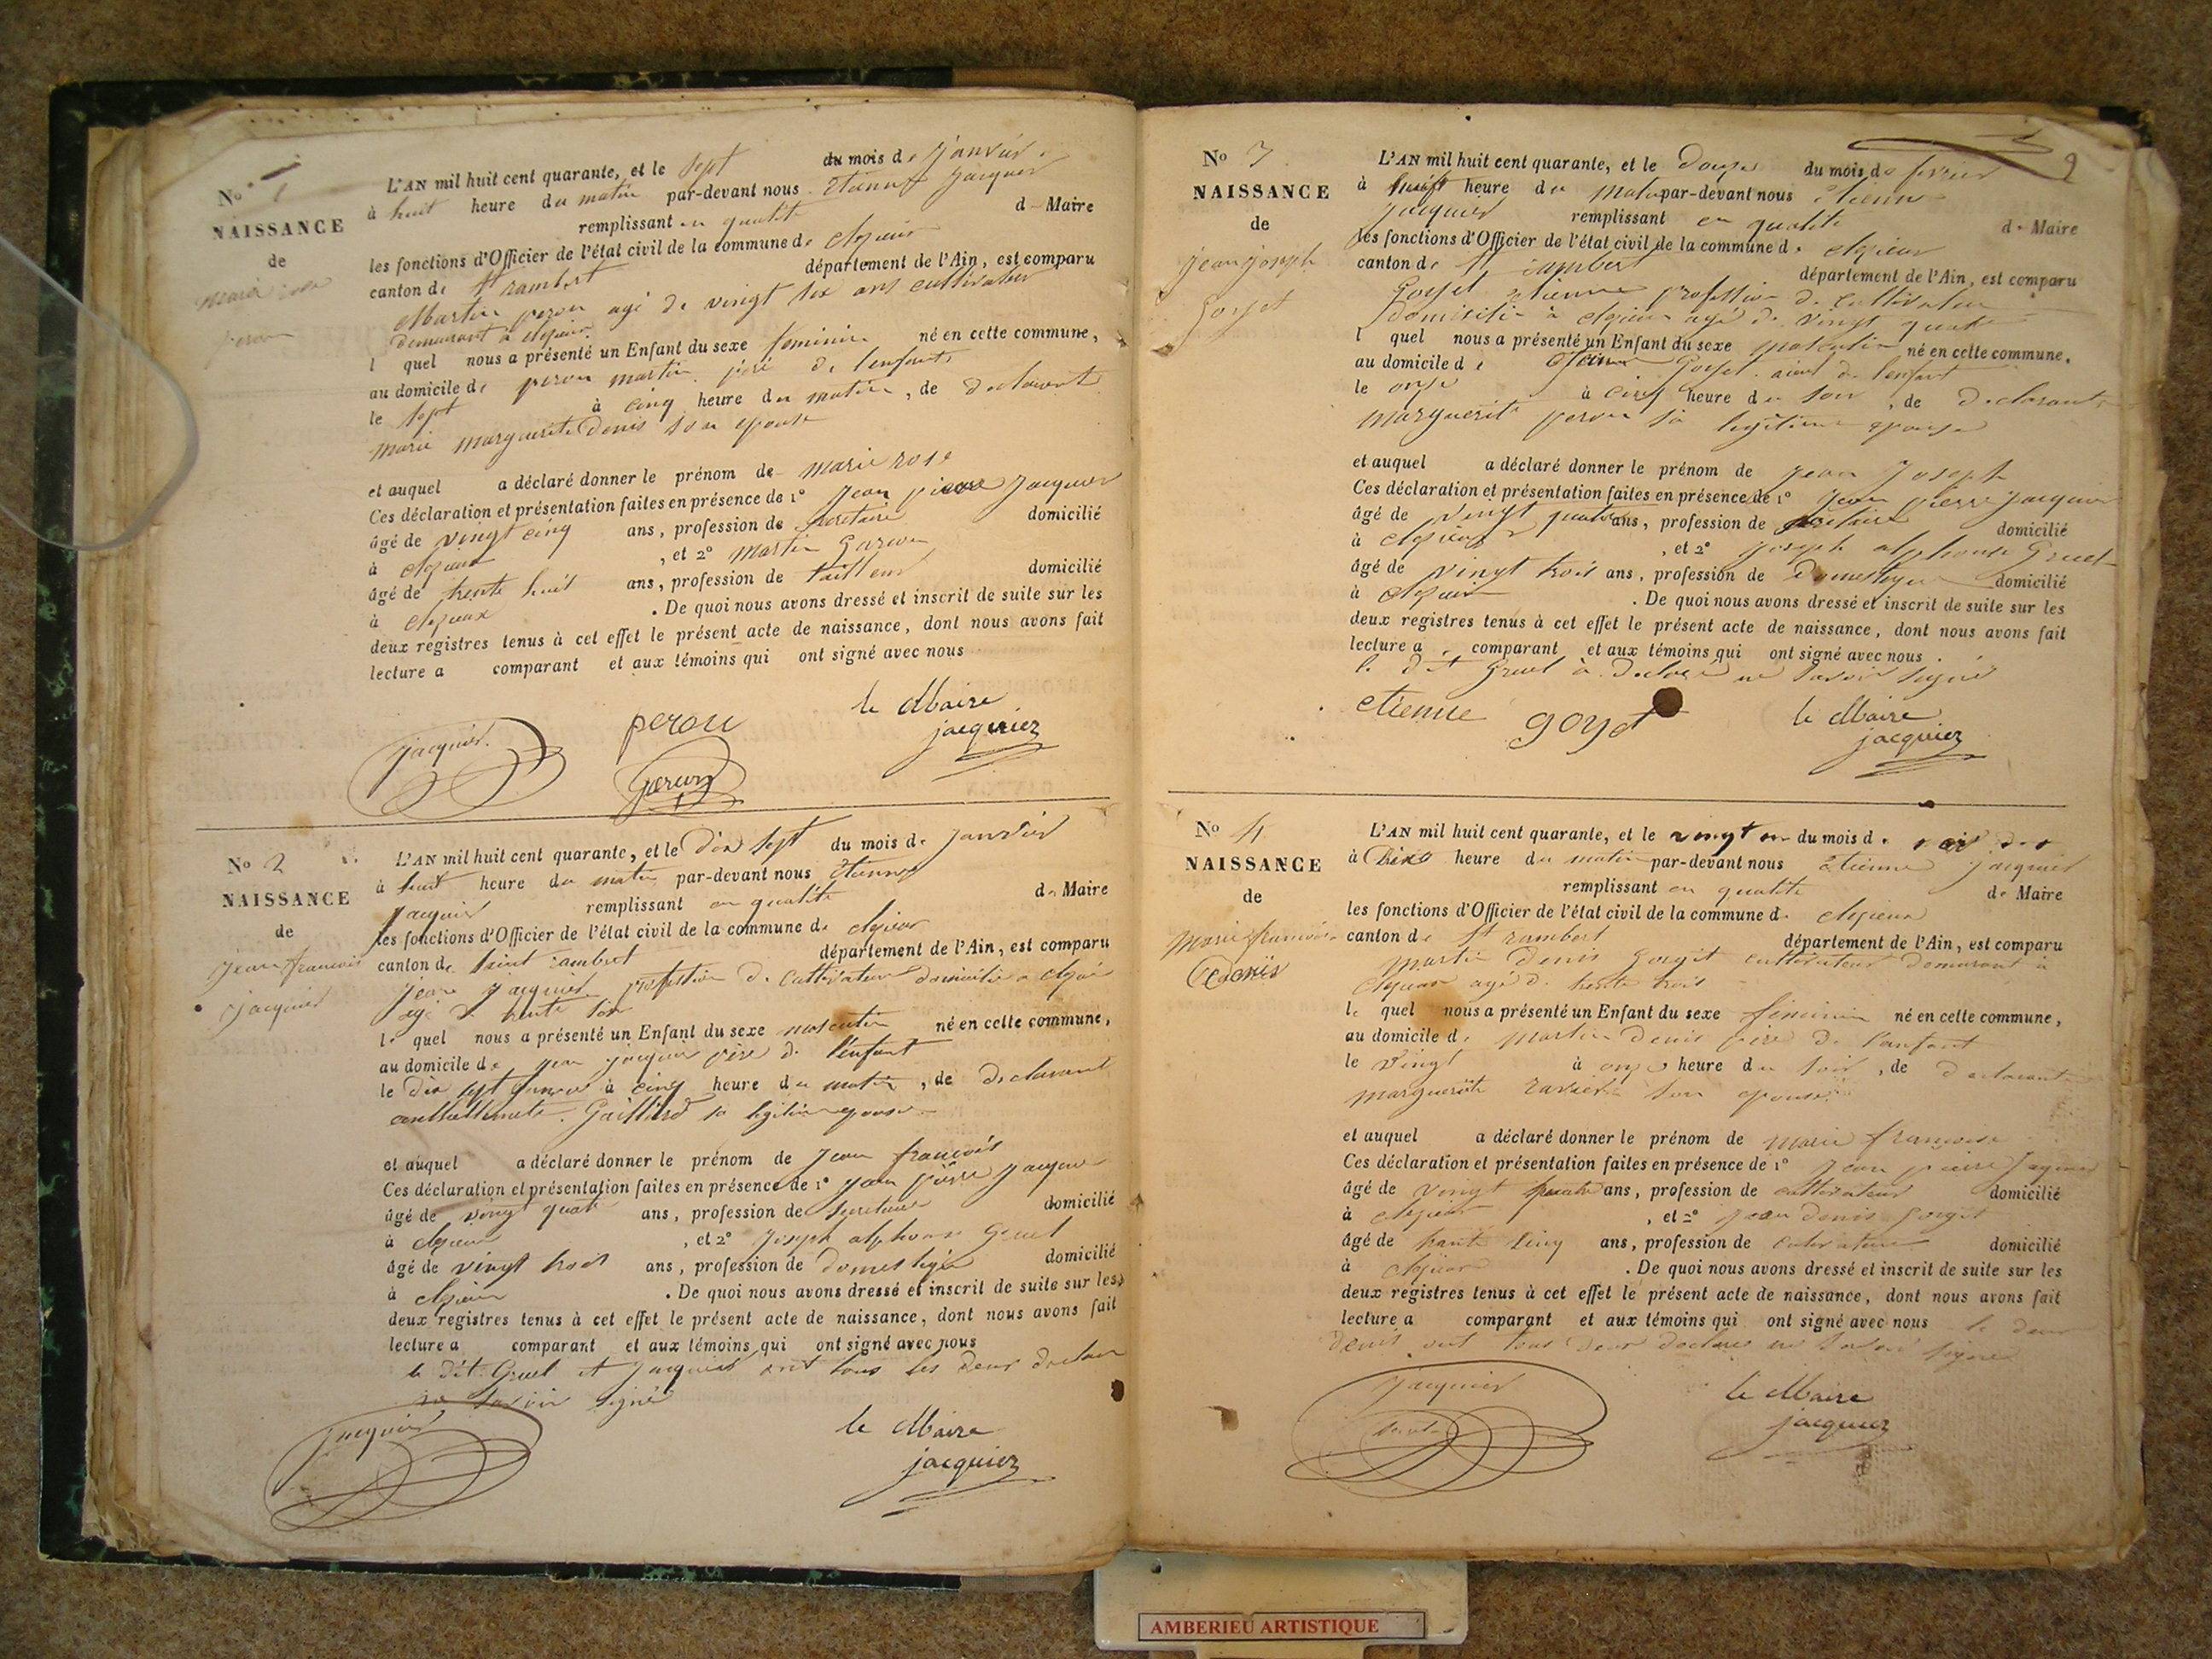 No 1
NAISSANCE
de
Marie rose
peron
L'AN mil huit cent quarante, et le sept du mois de janvier
à huit heure du matin par-devant nous Etienne Jacquier
remplissant en qualité de Maire
les fonctions d'Officier de l'état civil de la commune de
canton de St rambert département de l'Ain, est comparu
Martin peron agé de vingt six ans cultivateur
demurant à
l quel nous a présenté un Enfant du sexe feminin né en cette commune,
au domicile de peron martin père de l'enfant
le sept à cinq heure du matin, de declarant
marie marguerite Denis son epouse
et auquel a déclaré donner le prénom de marie rose
Ces déclaration et présentation faites en présence de 1° Jean pierre Jacquier
âgé de vingt cinq ans, profession de secretaire domicilié
à , et 2° Martin
âgé de trente huit ans, profession de tailleur domicilié
à . De quoi nous avons dressé et inscrit de suite sur les
deux registres tenus à cet effet le présent acte de naissance, dont nous avons fait
lecture a comparant et aux témoins qui ont signé avec nous
le Maire
jacquier peron jacquiez
No 2
NAISSANCE
de
Jean francois
jacquier
L'AN mil huit cent quarante, et le dix sept du mois de janvier
à huit heure du matin par-devant nous Etienne
Jacquier remplissant en qualité de Maire
les fonctions d'Officier de l'état civil de la commune de
canton de Saint rambert département de l'Ain, est comparu
Jean Jacquier profession de cultivateur domicilié à
agé de trente
le quel nous a présenté un Enfant du sexe masculin né en cette commune,
au domicile de jean jacquier père de l'enfant
le dix sept janvier à cinq heure du matin, de declarant
Gaillard sa legitime epouse
et auquel a déclaré donner le prénom de Jean francois
Ces déclaration et présentation faites en présence de 1° Jean pierre Jacquier
âgé de vingt quatre ans, profession de secretaire domicilié
à , et 2° Joseph alphonse Gruel
âgé de vingt trois ans, profession de domestique domicilié
à . De quoi nous avons dressé et inscrit de suite sur les
deux registres tenus à cet effet le présent acte de naissance, dont nous avons fait
lecture a comparant et aux témoins qui ont signé avec nous
le dit Gruel et Jacquier ont tous les deux declaré
ne savoir signé
jacquier le Maire
jacquiez
2
No 3
NAISSANCE
de
jean joseph
Goyet
L'AN mil huit cent quarante, et le douze du mois de fevrier
à heure du matin par-devant nous Etienne
Jacquier remplissant en qualité de Maire
les fonctions d'Officier de l'état civil de la commune de
canton de St rambert département de l'Ain, est comparu
Goyet etienne profession de cultivateur
domicilié à agé de vingt quatre
l quel nous a présenté un Enfant du sexe masculin né en cette commune,
au domicile de Goyet aieul de l'enfant
le onze à cinq heure du soir, de declarant
Marguerite peron sa legitime epouse
et auquel a déclaré donner le prénom de jean Joseph
Ces déclaration et présentation faites en présence de 1° Jean pierre Jacquier
âgé de vingt quatre ans, profession de domicilié
à , et 2° joseph alphonse Gruel
âgé de vingt trois ans, profession de domestique domicilié
à . De quoi nous avons dressé et inscrit de suite sur les
deux registres tenus à cet effet le présent acte de naissance, dont nous avons fait
lecture a comparant et aux témoins qui ont signé avec nous
le dit Gruel à declaré ne savoir signé
etienne goyet le Maire
jacquiez
No 4
NAISSANCE
de
Marie francoise
Denis
L'AN mil huit cent quarante, et le vingt un du mois de
à heure du matin par-devant nous Etienne jacquier
remplissant en qualité de Maire
les fonctions d'Officier de l'état civil de la commune de
canton de St rambert département de l'Ain, est comparu
Martin Denis cultivateur demurant à
agé de trente trois
le quel nous a présenté un Enfant du sexe feminin né en cette commune,
au domicile de Martin Denis père de l'anfant
le vingt à onze heure du soir, de declarant
marguerite son epouse
et auquel a déclaré donner le prénom de Marie francoise
Ces déclaration et présentation faites en présence de 1° Jean pierre Jaquier
âgé de vingt quatre ans, profession de cultivateur domicilié
à , et 2° jean Denis
âgé de ans, profession de domicilié
à . De quoi nous avons dressé et inscrit de suite sur les
deux registres tenus à cet effet le présent acte de naissance, dont nous avons fait
lecture a comparant et aux témoins qui ont signé avec nous le deux
Denis ont tous deux declaré ne savoir signé
jacquier le Maire
jacquiez
AMBERIEU ARTISTIQUE